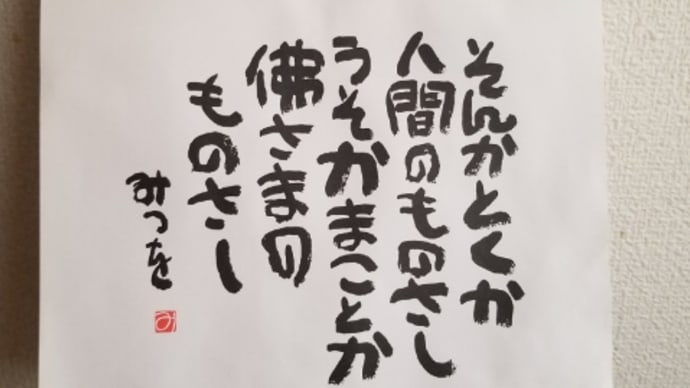 そんかとくか
人間のものさし
うそかまことか
佛さまの
ものさし
みつを
み